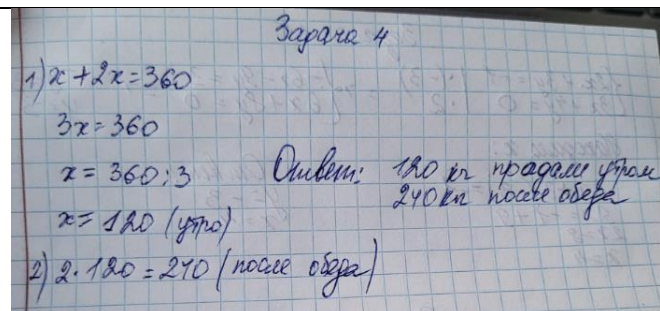 Задача 4
1) x + 2x = 360
3x = 360
x = 360 : 3
x = 120 (утро)
2) 2 · 120 = 240 (после обеда)
Ответ: 120 кг продали утром
240 кг после обеда